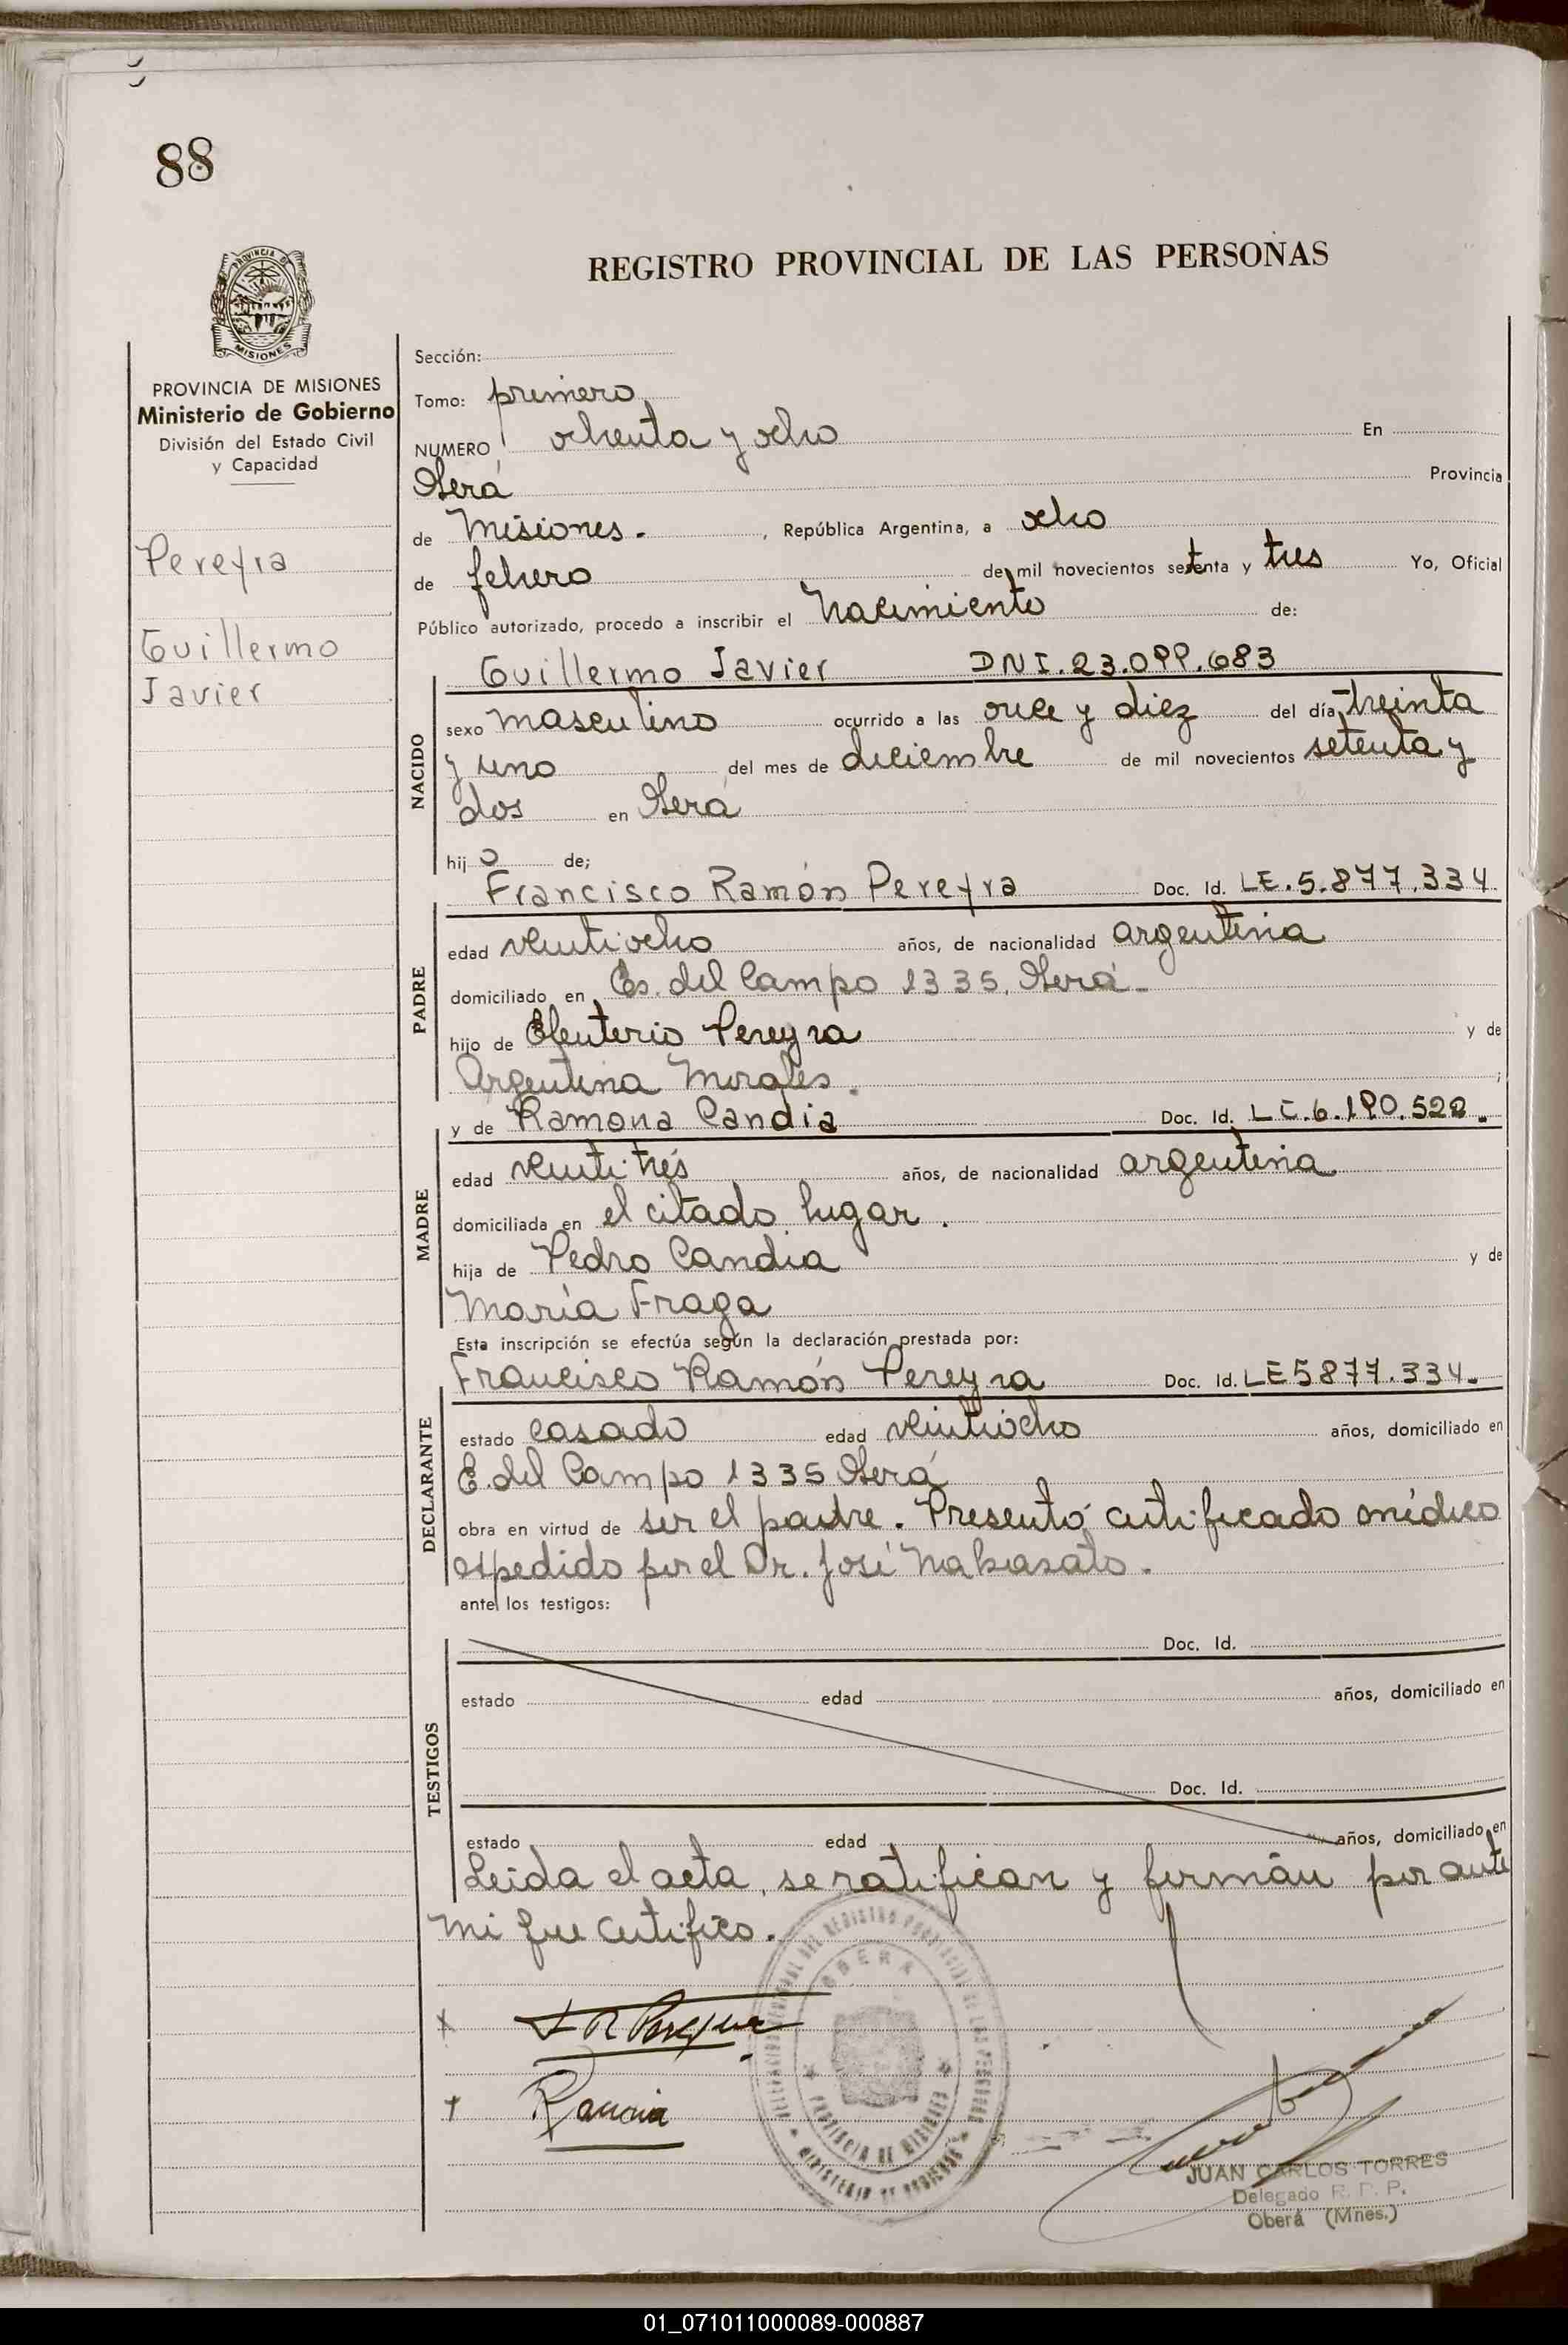 88
PROVINCIA DE
MISIONES
PROVINCIA DE MISIONES
Ministerio de Gobierno
División del Estado Civil
y Capacidad
Pereyra
Guillermo
Javier
REGISTRO PROVINCIAL DE LAS PERSONAS
Sección:
Tomo: primero
NUMERO ochenta y ocho En
Oberá Provincia
de Misiones. , República Argentina, a ocho
de febrero de mil novecientos setenta y tres Yo, Oficial
Público autorizado, procedo a inscribir el Nacimiento de:
Guillermo Javier DNI.23.099.683
NACIDO
sexo masculino ocurrido a las once y diez del día treinta
y uno del mes de diciembre de mil novecientos setenta y
dos en Oberá
hij o de;
Francisco Ramón Pereyra Doc. Id. LE.5.877.334.
PADRE
edad veintiocho años, de nacionalidad argentina
domiciliado en Es. del Campo 1335, Oberá.
hijo de Eleuterio Pereyra y de
Argentina Morales. ;
y de Ramona Candia Doc. Id. LC.6.190.522.
MADRE
edad veintitrés años, de nacionalidad argentina
domiciliada en el citado lugar.
hija de Pedro Candia y de
María Fraga
Esta inscripción se efectúa según la declaración prestada por:
Francisco Ramón Pereyra Doc. Id. LE5877.334.
DECLARANTE
estado casado edad veintiocho años, domiciliado en
E. del Campo 1335 Oberá
obra en virtud de ser el padre. Presentó certificado médico
expedido por el Dr. José Nakasato.
ante los testigos:
Doc. Id.
TESTIGOS
estado edad años, domiciliado en
Doc. Id.
estado edad años, domiciliado en
Leída el acta, se ratifican y firmán por ante
mi que certifico.
OBERA
PROVINCIA DE MISIONES
MINISTERIO DE GOBIERNO
JUAN CARLOS TORRES
Delegado R. P. P.
Oberá (Mnes.)
01_071011000089-000887